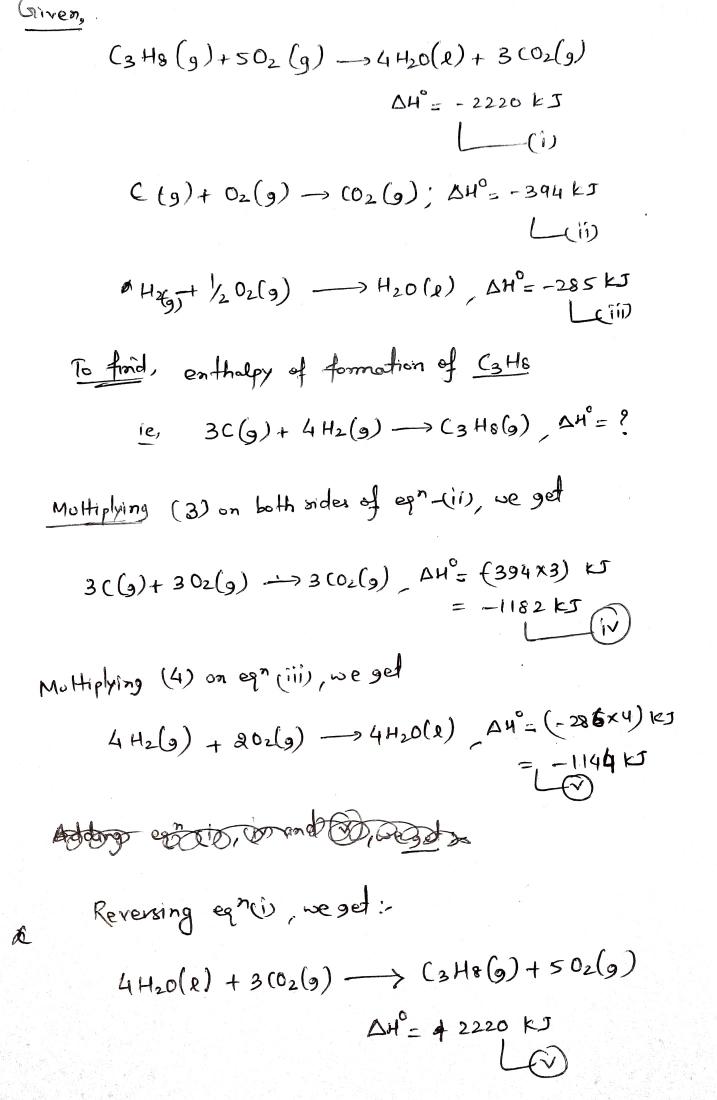 Given,
C3H8(g) + 5O2(g) → 4H2O(l) + 3CO2(g)
ΔH° = -2220 kJ
(i)
C(g) + O2(g) → CO2(g); ΔH° = -394 kJ
(ii)
H2(g) + 1/2 O2(g) → H2O(l), ΔH° = -285 kJ
(iii)
To find, enthalpy of formation of C3H8
ie, 3C(g) + 4H2(g) → C3H8(g), ΔH° = ?
Multiplying (3) on both sides of eqn-(ii), we get
3C(g) + 3O2(g) → 3CO2(g), ΔH° = (-394×3) kJ
= -1182 kJ
(iv)
Multiplying (4) on eqn (iii), we get
4H2(g) + 2O2(g) → 4H2O(l), ΔH° = (-286×4) kJ
= -1144 kJ
(v)
Reversing eqn(i), we get :-
4H2O(l) + 3CO2(g) → C3H8(g) + 5O2(g)
ΔH° = + 2220 kJ
(v)